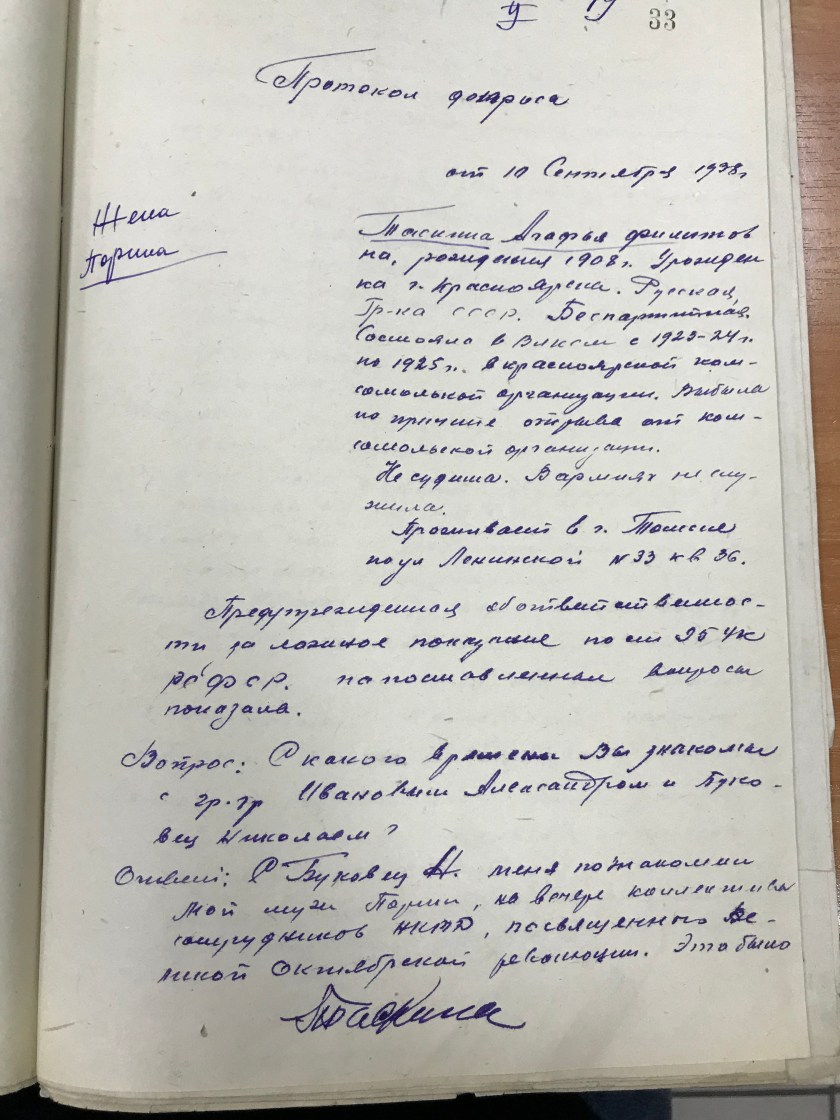 33
Протокол допроса
от 10 Сентября 1938 г
Жена
Парина
Таскина Агафья Филиппов
на, рождения 1908 г. Урожден
ка г. Красноярска. Русская,
Гр-ка СССР. Беспартийная.
Состояла в ВЛКСМ с 1923-24 г.
по 1925 г. в красноярской ком-
сомолькой организации. Выбыла
по причине отрыва от ком-
сомольской организации.
Не судима. В армиях не слу-
жила.
Проживает в г. Томске
по ул Ленинской № 33 кв 36.
Предупрежденная об ответственнос-
ти за ложное показание по ст 95 УК
РСФСР. на поставленные вопросы
показала.
Вопрос: С какого времени Вы знакомы
с гр-гр Ивановым Александром и Буко-
вец Николаем?
Ответ: С Буковец Н. меня познакомил
мой муж Парин, на вечере коллектива
сотрудников НКВД, посвященного Ве-
ликой Октябрской революции. Это было
Таскина